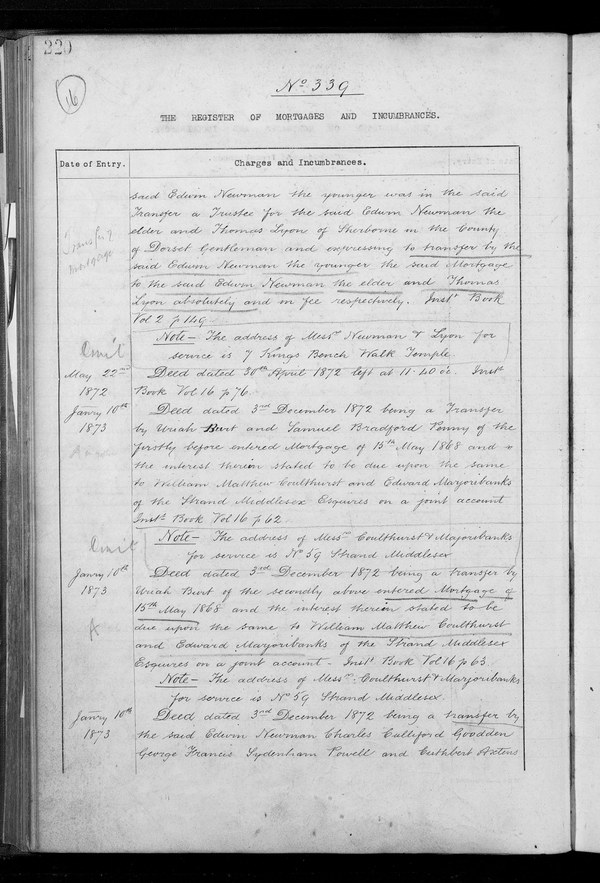 220
16
No. 339
THE REGISTER OF MORTGAGES AND INCUMBRANCES.
Date of Entry.
Charges and Incumbrances.
said Edwin Newman the younger was in the said
Transfer a Trustee for the said Edwin Newman the
elder and Thomas Lyon of Sherborne in the County
of Dorset Gentleman and expressing to transfer by the
said Edwin Newman the younger the said Mortgage
to the said Edwin Newman the elder and Thomas
Lyon absolutely and in fee respectively. Inst Book
Vol 2 p 149
Transfer of
mortgage
Note – The address of Messrs Newman & Lyon for
service is 7 Kings Bench Walk Temple
Omit
May 22nd
1872
Deed dated 30th April 1872 left at 11.40 oc. Instt
Book Vol 16 p 76
Janry 10th
1873
Deed dated 3rd December 1872 being a Transfer
by Uriah Burt and Samuel Bradford Penny of the
firstly before entered Mortgage of 15th May 1868 and
the interest therein stated to be due upon the same
to William Matthew Coulthurst and Edward Marjoribanks
of the Strand Middlesex Esquires on a joint account
Inst. Book Vol 16 p 62
Omit
Note – The address of Messrs Coulthurst & Majoribanks
for service is No 59 Strand Middlesex
Janry 10th
1873
Deed dated 3rd December 1872 being a transfer by
Uriah Burt of the secondly above entered Mortgage of
15th May 1868 and the interest therein stated to be
due upon the same to William Matthew Coulthurst
and Edward Marjoribanks of the Strand Middlesex
Esquires on a joint account – Inst Book Vol 16 p 63
Note – The address of Messrs: Coulthurst & Marjoribanks
for service is No 59 Strand Middlesex.
Janry 10th
1873
Deed dated 3rd December 1872 being a transfer by
the said Edwin Newman Charles Culliford Goodden
George Francis Sydenham Powell and Cuthbert